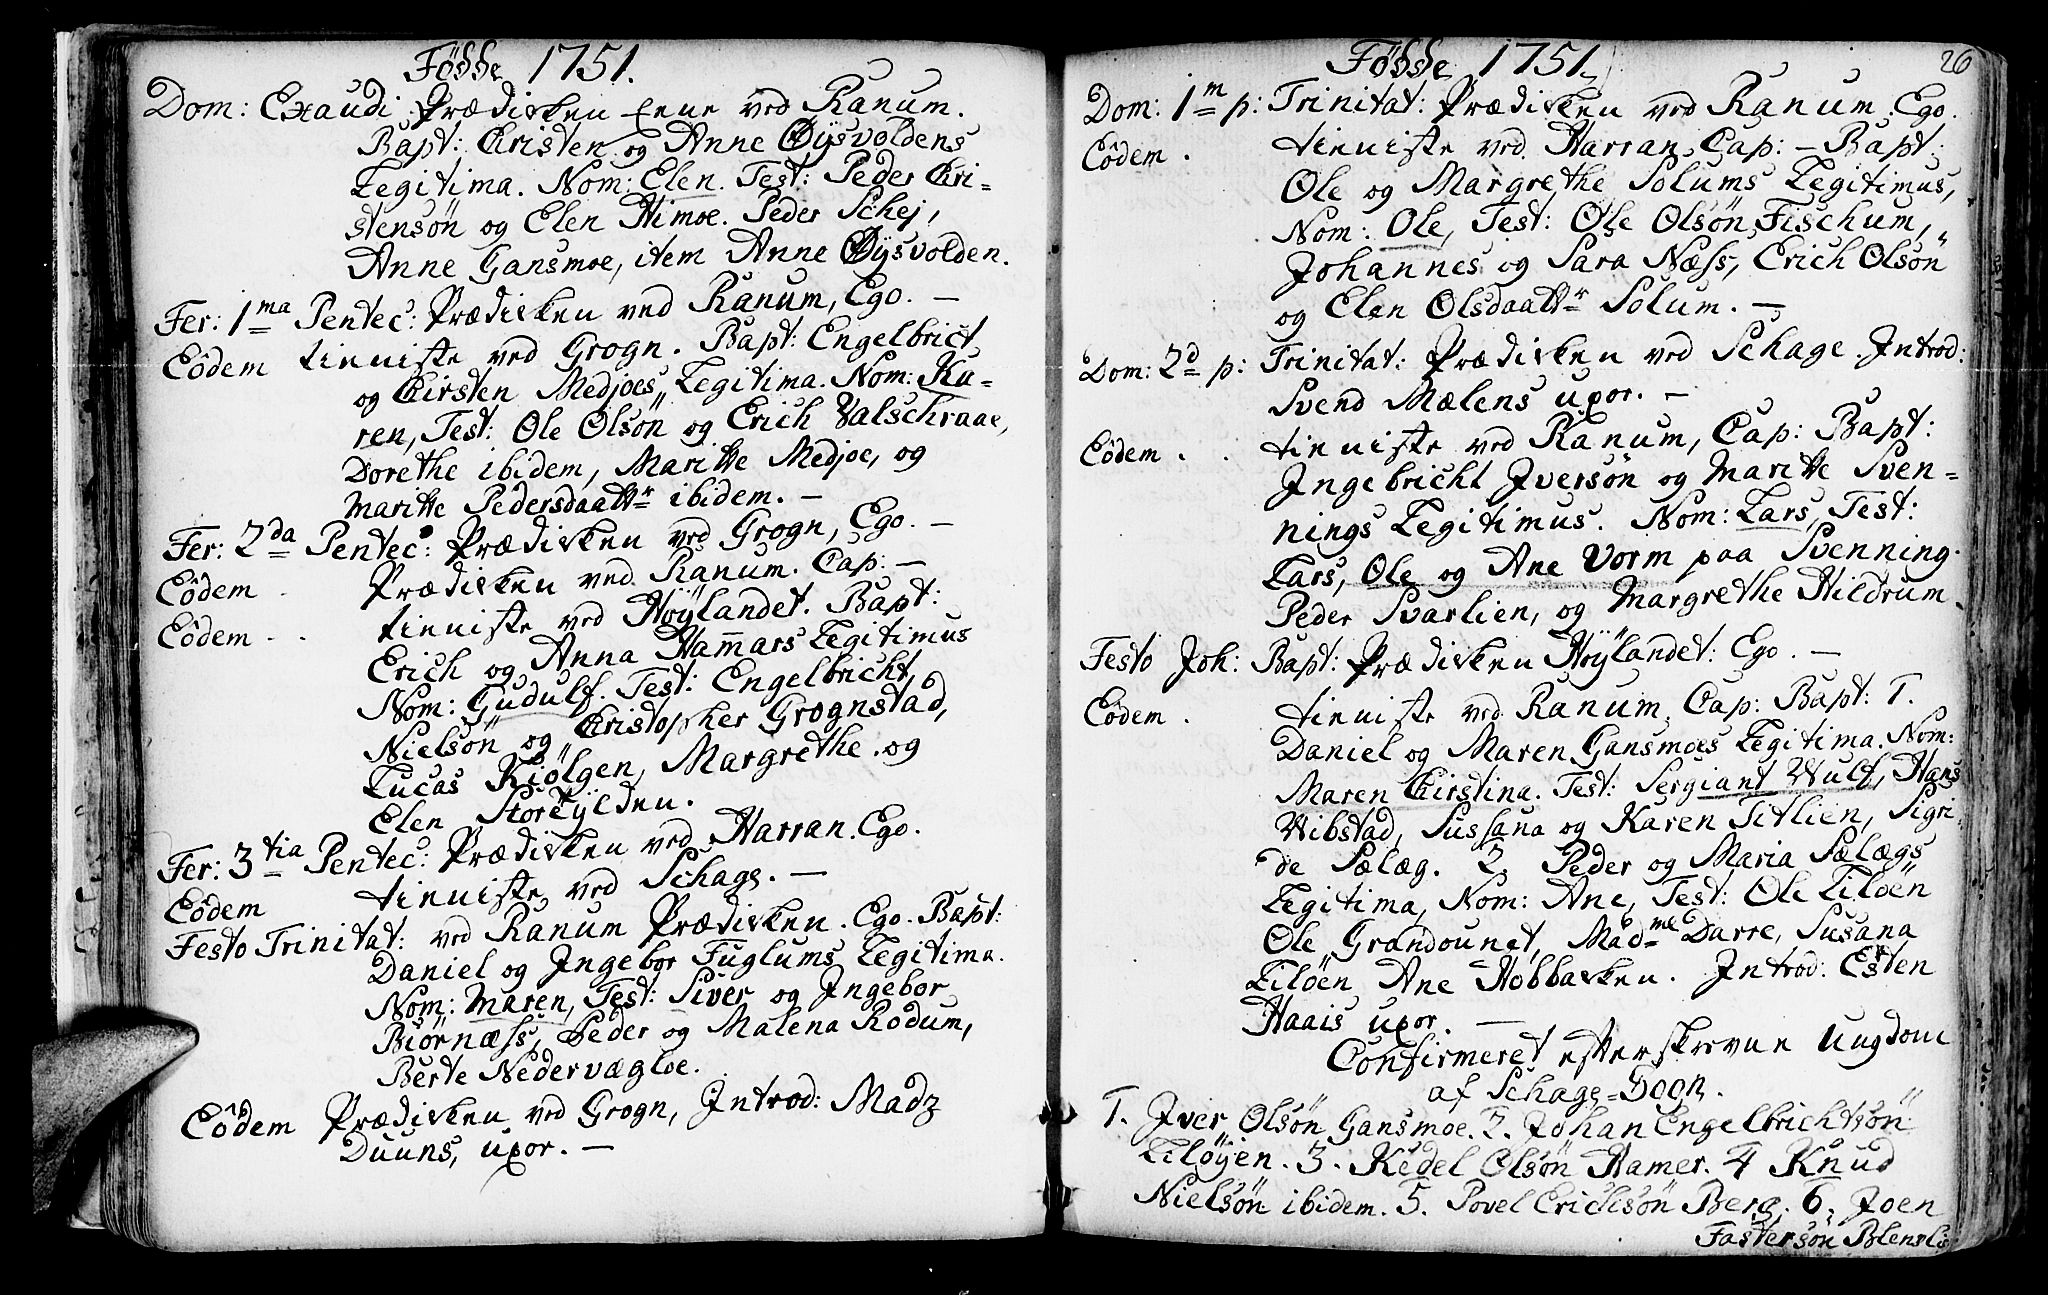 Födde 1751.
Dom: Exaudi Prædisken Ene ved Ranum.
Bapt: Christen og Anne Øÿsvoldens
Legitima. Nom: Elen. Test: Peder Chri-
stensön og Elen Himoe. Peder Schej,
Anne Gansmoe, item Anne Øÿsvolden.
Fer: 1ma Pentec: Prædisken ved Ranum, Ego. —
Eôdem tienniste ved Grogn. Bapt: Engelbrict
og Chirsten Medjoes, Legitima. Nom: Ka-
ren, Test: Ole Olsön og Erich Valschraae,
Dorethe ibidem, Maritte Medjoe, og
Maritte Pedersdaattr ibidem. —
Fer: 2da Pentec: Prædisken ved Grogn, Ego. —
Eôdem Prædisken ved Ranum. Cap: —
Eôdem tienniste ved Höÿlandet. Bapt:
Erich og Anna Ham̄ars Legitimus
Nom: Gudulf. Test: Engelbricht
Nielsön og Christopher Grognstad,
Lucas Kiölgen, Margrethe og
Elen Storeÿlden.
Fer: 3tia Pentec: Prædisken ved Harran. Ego.
Eôdem tienniste ved Schage. —
Festo Trinitat: ved Ranum Prædisken. Ego. Bapt:
Daniel og Ingebor Fuglums Legitima.
Nom: Maren, Test: Siver og Ingebor
Biörnæss, Peder og Malena Rodum,
Berte Nedervægloe.
Eôdem Prædisken ved Grogn, Introd: Madz
Duuns, uxor. —
Födde 1751.
26
Dom: 1m p: Trinitat: Prædisken ved Ranum. Ego.
Eôdem. tienniste ved Harran, Cap: — Bapt:
Ole og Margrethe Solums Legitimus,
Nom: Ole, Test: Ole Olsön Fischum,
Johannes og Sara Næss, Erich Olsön
og Elen Olsdaattr Solum. —
Dom: 2d p: Trinitat: Prædisken ved Schage. Introd:
Svend Mælens uxor. —
Eôdem. . tienniste ved Ranum, Cap: Bapt:
Ingebricht Iversön og Maritte Sven-
nings Legitimus. Nom: Lars, Test:
Lars, Ole og Ane Vorm paa Svenning
Peder Svarlien, og Margrethe Hildrum.
Festo Joh: Bapt: Prædisken Höÿlandet: Ego. —
Eôdem. tienniste ved Ranum, Cap: Bapt: 1.
Daniel og Maren Gansmoes Legitima. Nom:
Maren Chirstina. Test: Sergiant Wulf, Hans
Wibstad, Sussana og Karen Titlien, Sigri-
de Sælæg. 2. Peder og Maria Sælægs
Legitima, Nom: Ane, Test: Ole Lilöen
Ole Grandounet, Madme Darre, Susana
Lilöen Ane Hobbacken. Introd: Esten
Haais uxor. —
Confirmeret efterskrevne Ungdom
af Schage-Sogn.
1. Iver Olsön Gansmoe. 2. Johan Engelbrichtsön
Lilöÿen. 3. Kedel Olsön Hamer. 4 Knud
Nielsön ibidem. 5. Povel Erichsön Berg. 6. Joen
Fastersön